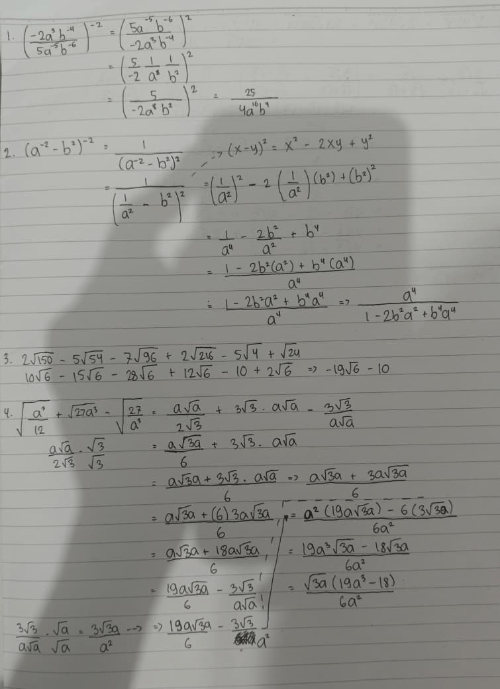 1. (-2a³b⁻⁴ / 5a⁻⁵b⁻⁶)⁻² = (5a⁻⁵b⁻⁶ / -2a³b⁻⁴)²
= (5/-2 1/a⁸ 1/b²)²
= (5 / -2a⁸b²)² = 25 / 4a¹⁶b⁴
2. (a⁻² - b²)⁻² = 1 / (a⁻² - b²)² → (x-y)² = x² - 2xy + y²
= 1 / (1/a² - b²)² = (1/a²)² - 2(1/a²)(b²) + (b²)²
= 1/a⁴ - 2b²/a² + b⁴
= 1 - 2b²(a²) + b⁴(a⁴) / a⁴
= 1 - 2b²a² + b⁴a⁴ / a⁴ => a⁴ / 1 - 2b²a² + b⁴a⁴
3. 2√150 - 5√54 - 7√96 + 2√216 - 5√4 + √24
10√6 - 15√6 - 28√6 + 12√6 - 10 + 2√6 => -19√6 - 10
4. √(a³/12) + √27a³ - √(27/a³) = a√a / 2√3 + 3√3 . a√a - 3√3 / a√a
a√a / 2√3 . √3 / √3 = a√3a / 6 + 3√3 . a√a
= a√3a + 3√3 . a√a / 6 => a√3a + 3a√3a / 6
= a√3a + (6) 3a√3a / 6 = a² (19a√3a) - 6 (3√3a) / 6a²
= a√3a + 18a√3a / 6 = 19a³√3a - 18√3a / 6a²
= 19a√3a / 6 - 3√3 / a√a = √3a (19a³ - 18) / 6a²
3√3 / a√a . √a / √a = 3√3a / a² => 19a√3a / 6 - 3√3 / a²